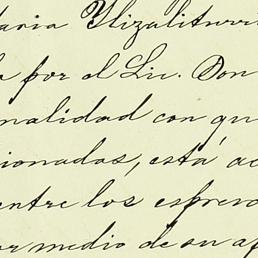 taria Ylizaliturri
por el Lic. Don
nalidad con qu
cionadas, está ac
entre los expresa
or medio de su ap